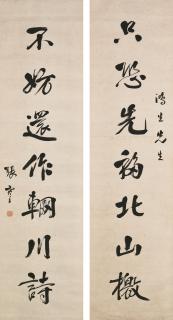 鴻生先生
只恐先移北山檄
不妨還作輞川詩
張謇